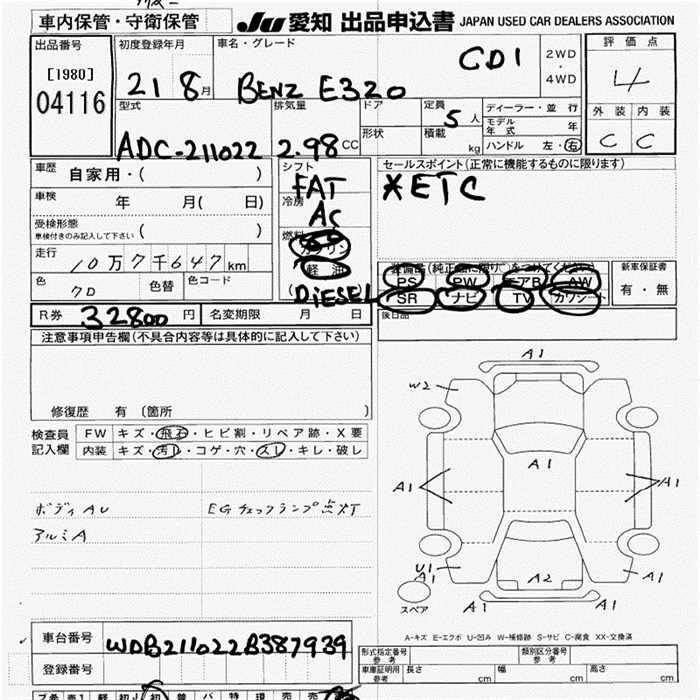 車内保管・守衛保管 JU 愛知 出品申込書 JAPAN USED CAR DEALERS ASSOCIATION
出品番号 初度登録年月 車名・グレード 2WD・4WD 評価点
[1980] 04116 21 8月 BENZ E320 CDI 4
型式 排気量 ドア 定員 5人 ディーラー・並行 外装 内装
形状 積載 kg モデル年式 年
ADC-211022 2.98 CC ハンドル 左・右 C C
車歴 自家用・( ) シフト FAT セールスポイント(正常に機能するものに限ります)
車検 年 月( 日) 冷房 AC *ETC
受検形態 車検付きのみ記入して下さい ( ) 燃料 ガソリン
走行 10万7千647km 軽油 装備品(純正品に限り○をつけてください) 新車保証書
色 7D 色替 色コード ( DiESEL PS PW エアB AW 有・無
SR ナビ TV カワシート
R券 32800円 名変期限 月 日 後日品
注意事項申告欄(不具合内容等は具体的に記入して下さい)
修復歴 有 〔箇所 〕
検査員記入欄 FW キズ・飛石・ヒビ割・リペア跡・X要
内装 キズ・汚レ・コゲ・穴・スレ・キレ・破レ
ボディAU EGチェックランプ点灯
アルミA
A1
W2
A1
A1 A1
U1
A1 A2 A1
スペア A1 A1
A-キズ E-エクボ U-凹み W-補修跡 S-サビ C-腐食 XX-交換済
車台番号 WDB211022B387939
登録番号
形式指定番号 参考 類別区分番号 参考
車庫証明用 参考 長さ cm 幅 cm 高さ cm